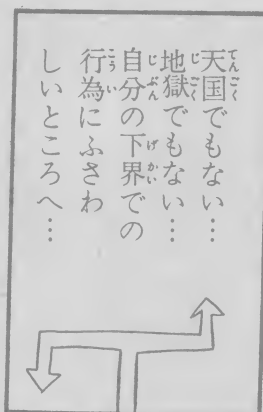 天国でもない…
地獄でもない…
自分の下界での
行為にふさわ
しいところへ…